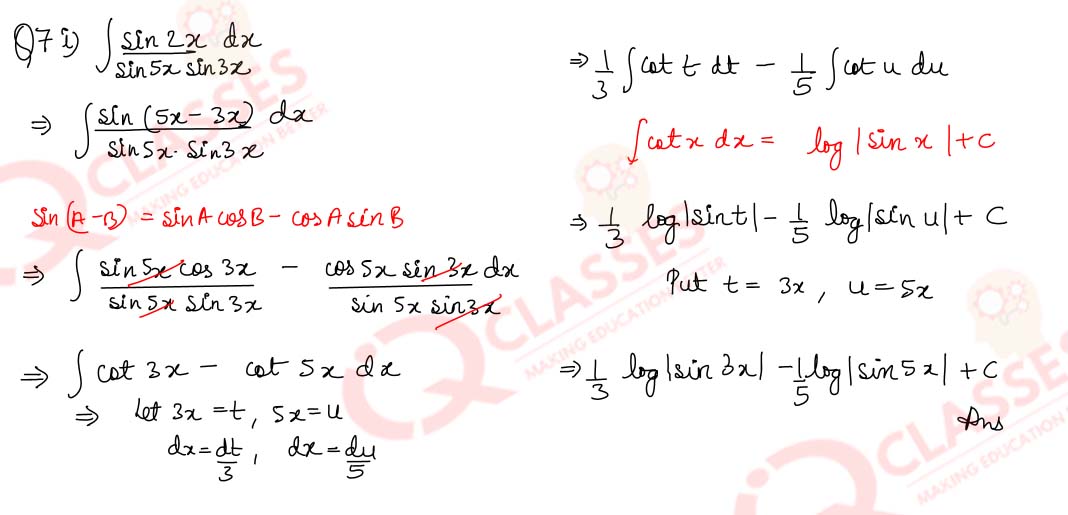 Q7 i) ∫ sin 2x dx / sin5x sin3x
⇒ ∫ sin (5x - 3x) dx / sin5x · sin3x
sin(A-B) = sinA cosB - cosA sinB
⇒ ∫ sin5x cos 3x / sin 5x sin 3x - cos 5x sin 3x dx / sin 5x sin3x
⇒ ∫ cot 3x - cot 5x dx
⇒ Let 3x = t, 5x = u
dx = dt/3, dx = du/5
⇒ 1/3 ∫ cot t dt - 1/5 ∫ cot u du
∫ cot x dx = log |sin x| + C
⇒ 1/3 log|sin t| - 1/5 log|sin u| + C
Put t = 3x, u = 5x
⇒ 1/3 log|sin 3x| - 1/5 log|sin 5x| + C
Ans
CLASSES
MAKING EDUCATION BETTER
CLASSES
MAKING EDUCATION BETTER
CLASSES
MAKING EDUCATION